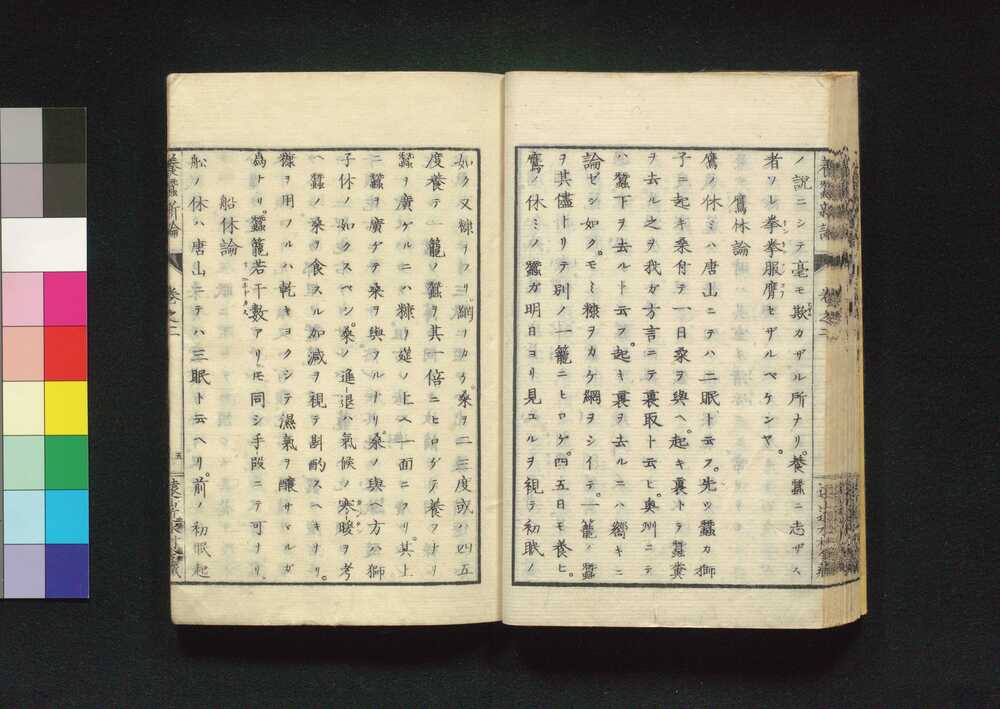 ノ説ニシテ毫モ欺カザル所ナリ。養蚕ニ志ザス
者ソレ拳拳服膺セザルベケンヤ。
鷹休論
鷹ノ休ミハ唐山ニテハ二眠ト云フ。先ツ蚕カ獅
子ニ起キ桑付テ一日桑ヲ與ヘ。起キ裏トテ蚕糞
ヲ去ル之ヲ我ガ方言ニテ裏取ト云ヒ。奥州ニテ
ハ蚕下ヲ去ルト云フ。起キ裏ヲ去ルニハ嚮キニ
論ゼシ如ク。モミ糠ヲカケ網ヲシイテ。一籠ノ蚕
ヲ其儘トリテ別ノ一籠ニヒロゲ。四五日モ養ヒ。
鷹ノ休ミノ蚕ガ明日ヨリ見ユルヲ視テ初眠ノ
如ク又糠ヲフリ網ヲカケ。桑ヲ二三度或ハ四五
度養テ一籠ノ蚕ヲ其一倍ニヒロゲテ養フナリ
蚕ヲ廣ゲルニハ糠リ莚ノ上ヘ一面ニフリ。其上
ニ蚕ヲ廣ゲテ桑ヲ與フルナリ。桑ノ與ヘ方ハ獅
子休ノ如クスベシ。桑ノ進退ハ氣候ノ寒暖ヲ考
ヘ蚕ノ桑ヲ食スル加減ヲ視テ斟酌スヘキナリ。
糠ヲ用フルハ乾キヨクシテ濕氣ヲ醸サヾルガ
為ナリ。蚕籠若干数アリトモ同シ手段ニテ可ナリ
船休論
舩ノ休ハ唐山ニテハ三眠ト云ヘリ。前ノ初眠起
養蚕新論 巻之二
五